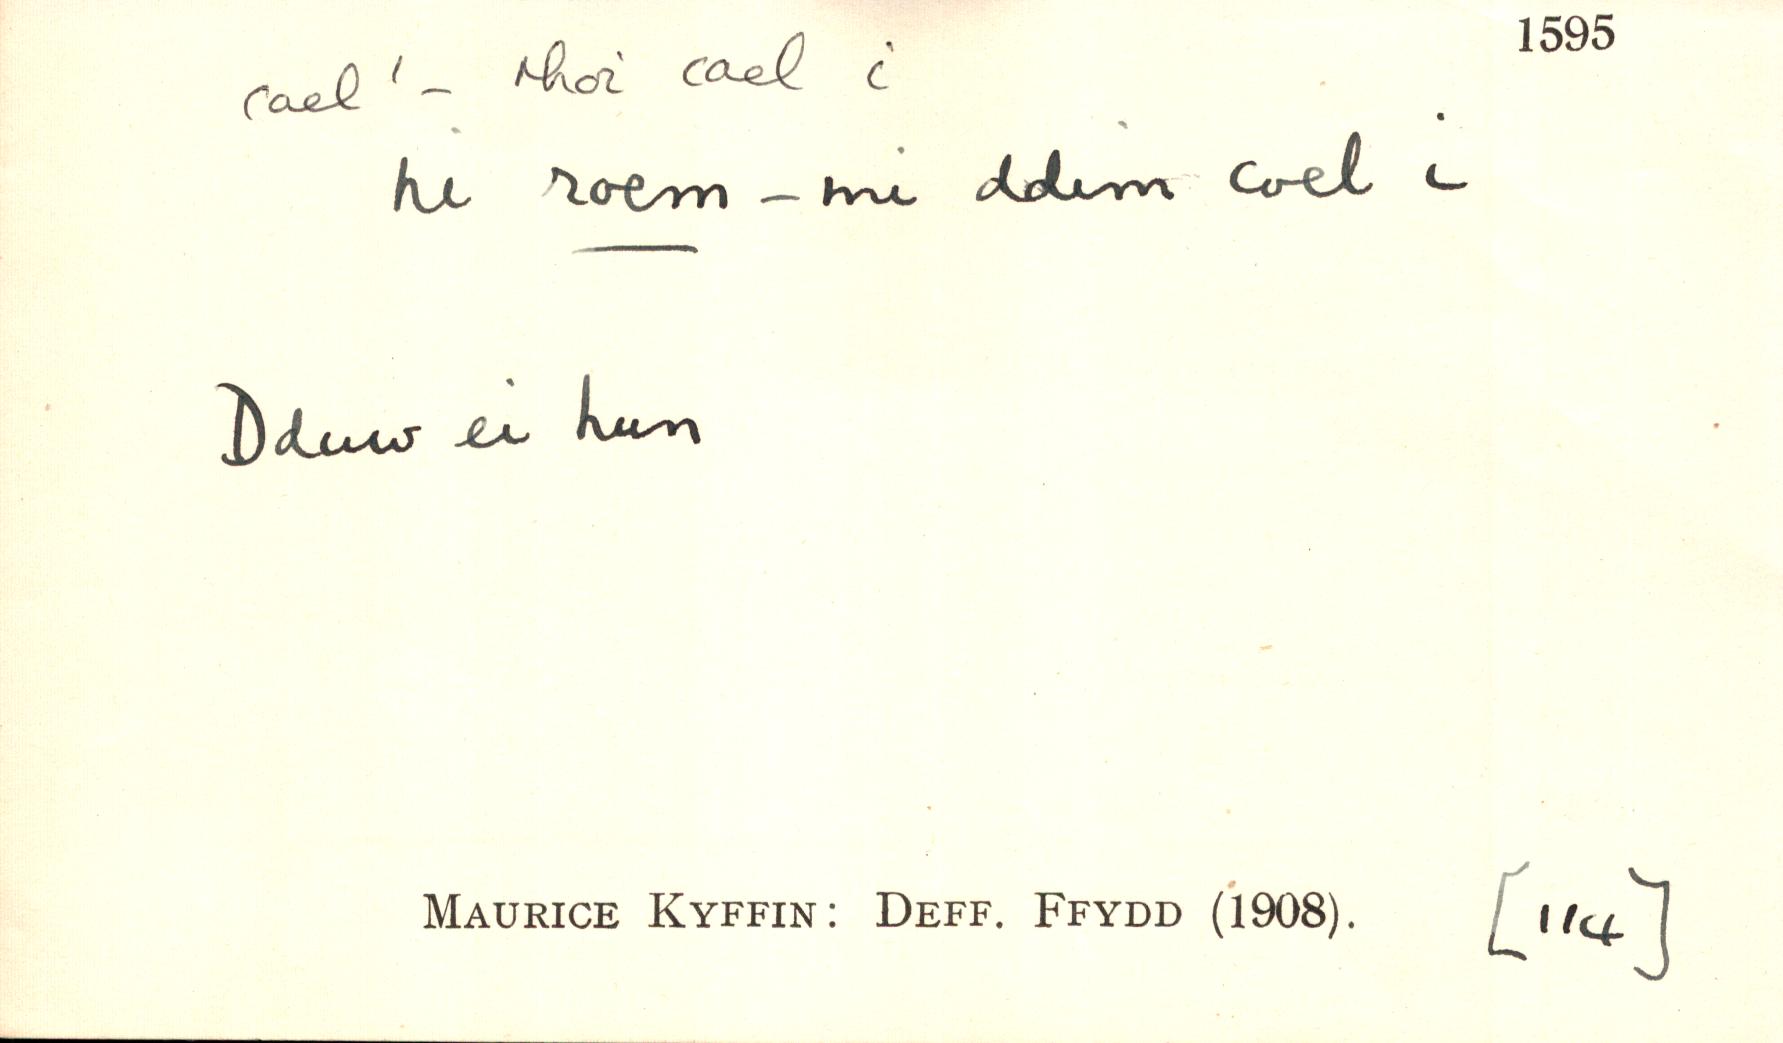 1595
coel¹ – rhoi coel i
ni roem – ni ddim coel i
Dduw ei hun
MAURICE KYFFIN: DEFF. FFYDD (1908). [114]